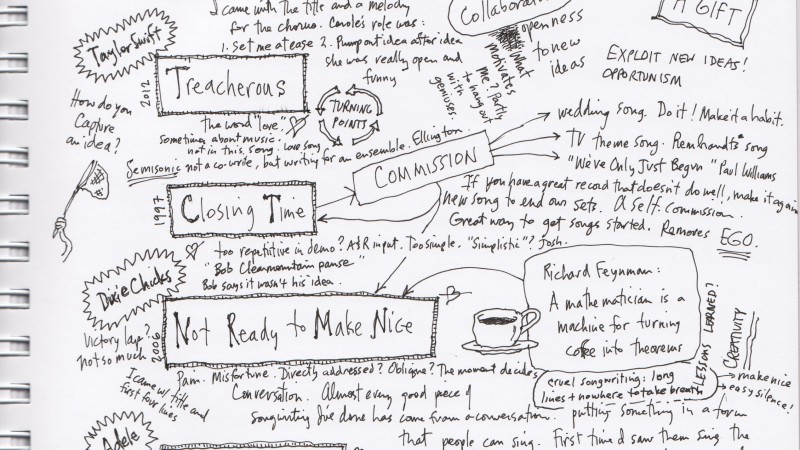 I came with the title and a melody
for the chorus. Carole's role was:
1. set me at ease 2. Pump out idea after idea
she was really open and
funny
Collaboration
openness
to new
ideas
What
motivates
me? Partly
to hang out
with
geniuses
A GIFT
EXPLOIT NEW IDEAS!
OPPORTUNISM
Taylor Swift
2012
Treacherous
TURNING
POINTS
How do you
capture
an idea?
The word "love".
sometimes about music.
not in this song. Love song
Semisonic not a co-write, but writing for an ensemble. Ellington.
COMMISSION
wedding song. Do it! Make it a habit.
TV theme song. Rembrandts song
"We've Only Just Begun" Paul Williams
If you have a great record that doesn't do well, make it again
New song to end our sets. A self-commission.
Great way to get songs started. Removes EGO.
1997
Closing Time
too repetitive in demo? A&R input. Too simple. "Simplistic"? Josh.
"Bob Clearmountain pause"
Bob says it wasn't his idea.
Dixie Chicks
Victory lap?
not so much
2006
Not Ready to Make Nice
Richard Feynman:
A mathematician is a
machine for turning
coffee into theorems
LESSONS LEARNED?
CREATIVITY
make nice
easy silence!
cruel songwriting: long
lines + nowhere to take breath
I came w/ title and
first four lines
Pam. Misfortune. Directly addressed? Oblique? The moment decides
Conversation. Almost every good piece of
songwriting I've done has come from a conversation. putting something in a form
that people can sing. First time I saw them sing the
Adele